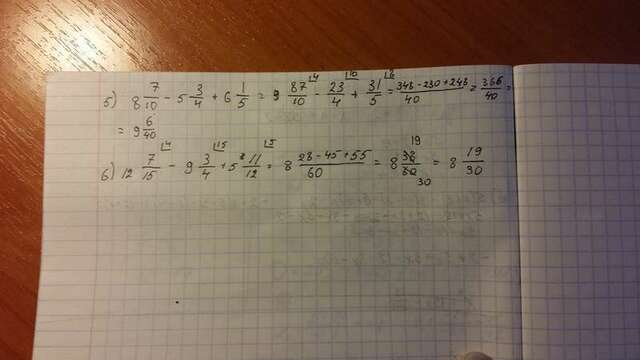 5) 8 7/10 - 5 3/4 + 6 1/5 = 9 87/10 - 23/4 + 31/5 = 348 - 230 + 248/40 = 366/40 =
= 9 6/40
6) 12 7/15 - 9 3/4 + 5 11/12 = 8 28 - 45 + 55/60 = 8 38/60 = 8 19/30